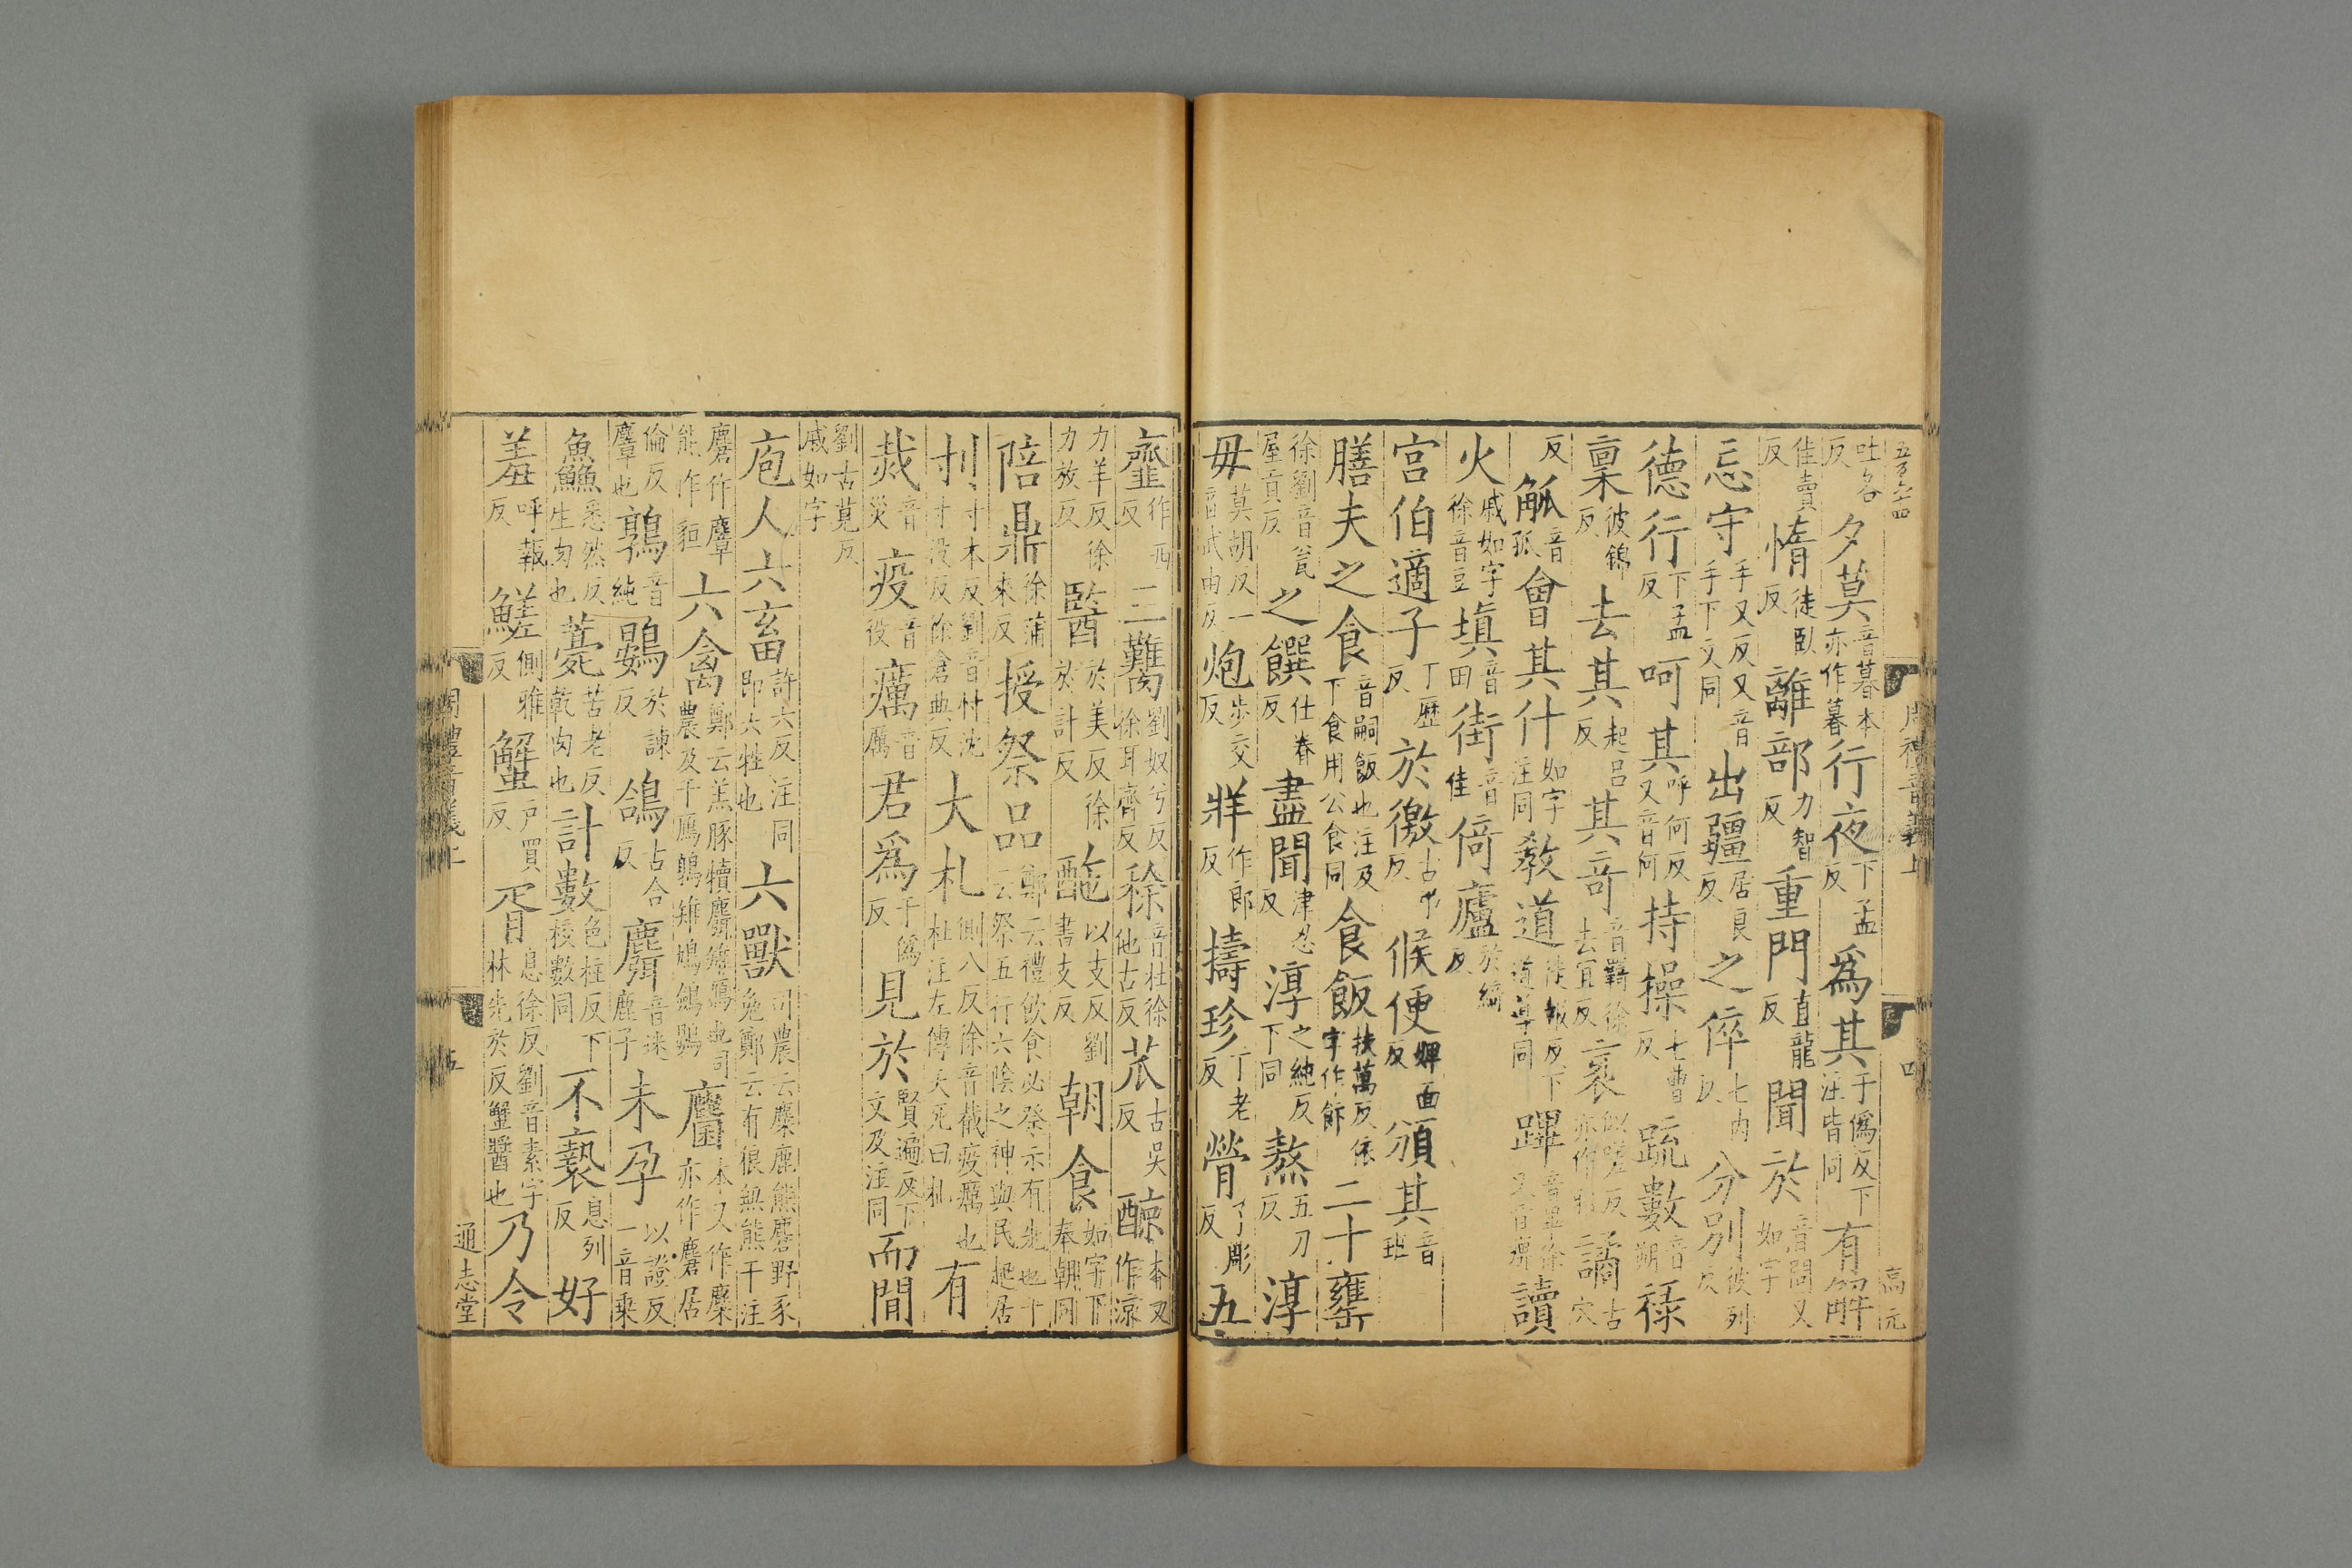 吐各反夕莫音暮本亦作暮行夜下孟反爲其于僞反下注皆同有解
佳賣反惰徒臥反離部力智反重門直龍反聞於音問又如字
忘守手又反又音手下文同出疆居良反之倅七內反分別彼列反
德行下孟反呵其呼何反又音何持操七曹反疏數音朔祿
稟彼錦反去其起呂反其奇音羈徐去宜反衺似嗟反亦作邪譎古穴
反觚音孤會其什如字注同教道徒報反下道導同蹕音畢徐又音婢讀
火戚如字徐音豆填音田街音佳倚廬於綺反
宮伯適子丁歷反於徼古弔反候便婢面反頒其音班
膳夫之食音嗣飯也注及下食用公食同食飯扶萬反依字作飰二十甕
徐劉音瓮屋貢反之饌仕眷反盡聞津忍反淳之純反下同熬五刀反淳
毋莫胡反一音武由反炮步交反牂作郎反擣珍丁老反膋了彫反五
齏作西反三臡劉奴兮反徐耳齊反稌音杜徐他古反苽古吳反䣼本又作涼
力羊反徐力放反醫於美反徐於計反酏以支反劉書支反朝食如字下奉朝同
陪鼎徐蒲來反授祭品鄭云禮飲食必祭示有先也干云祭五行六陰之神與民起居
刌寸本反劉音忖沈寸沒反徐倉典反大札側八反徐音截疫癘也杜注左傳夭死曰札有
烖音災疫音役癘音厲君爲于僞反見於賢遍反下文及注同而間
劉古莧反戚如字
庖人六畜許六反注同即六牲也六獸司農云麋鹿熊麕野豕兔鄭云有狼無熊干注
麕作麞熊作貆六禽鄭云羔豚犢麛雉鴈也司農及干鴈鶉鷃雉鳩鴿麕本又作麇亦作麏居
倫反麞也鶉音純鷃於諫反鴿古合反麛音迷鹿子未孕以證反一音乘
魚鱻悉然反生肉也薧苦老反乾肉也計數色柱反下校數同不褻息列反好
羞呼報反䱹側雅反蟹戶買反胥息徐反劉音素字林先於反蟹醬也乃令
通志堂